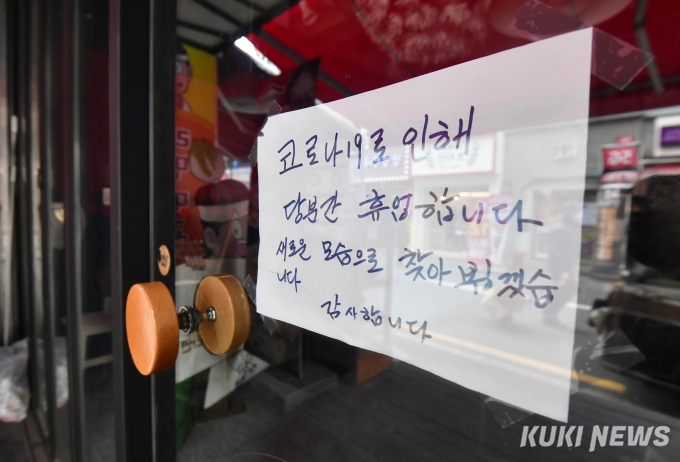 코로나19로 인해
당분간 휴업합니다
새로운 모습으로 찾아뵙겠습
니다
감사합니다
KUKI NEWS